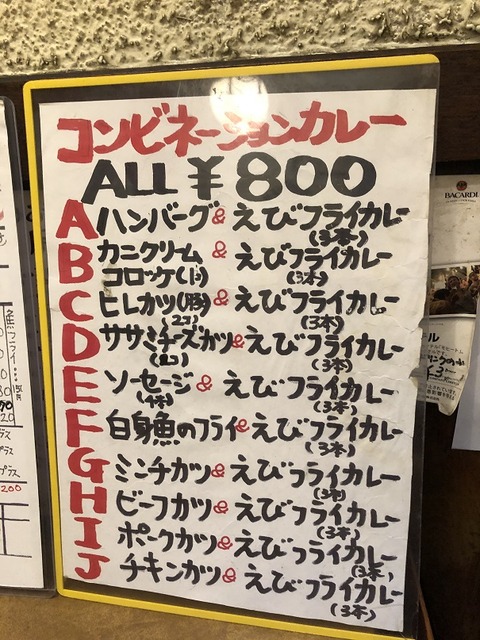 コンビネーションカレー
ALL ¥800
A ハンバーグ&えびフライカレー
(3本)
B カニクリーム
コロッケ(1ヶ)&えびフライカレー
(3本)
C ヒレカツ(豚)&えびフライカレー
(2ヶ) (3本)
D ササミチーズカツ&えびフライカレー
(3本)
E ソーセージ&えびフライカレー
(4本) (3本)
F 白身魚のフライ&えびフライカレー
(3本)
G ミンチカツ&えびフライカレー
(3本)
H ビーフカツ&えびフライカレー
(3本)
I ポークカツ&えびフライカレー
(3本)
J チキンカツ&えびフライカレー
(3本)
BACARDI
200